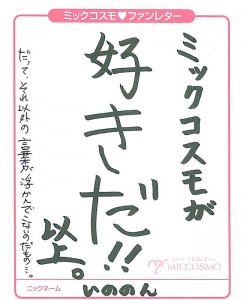 ミックコスモ♥ファンレター
ミックコスモが
好きだ!!
以上。
だって、それ以外の言葉が浮かんでこないのだもの…。
MICCOSMO
ニックネーム
いののん